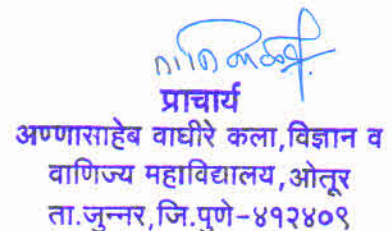 प्राचार्य
अण्णासाहेब वाघीरे कला,विज्ञान व
वाणिज्य महाविद्यालय,ओतूर
ता.जुन्नर,जि.पुणे-४१२४०९